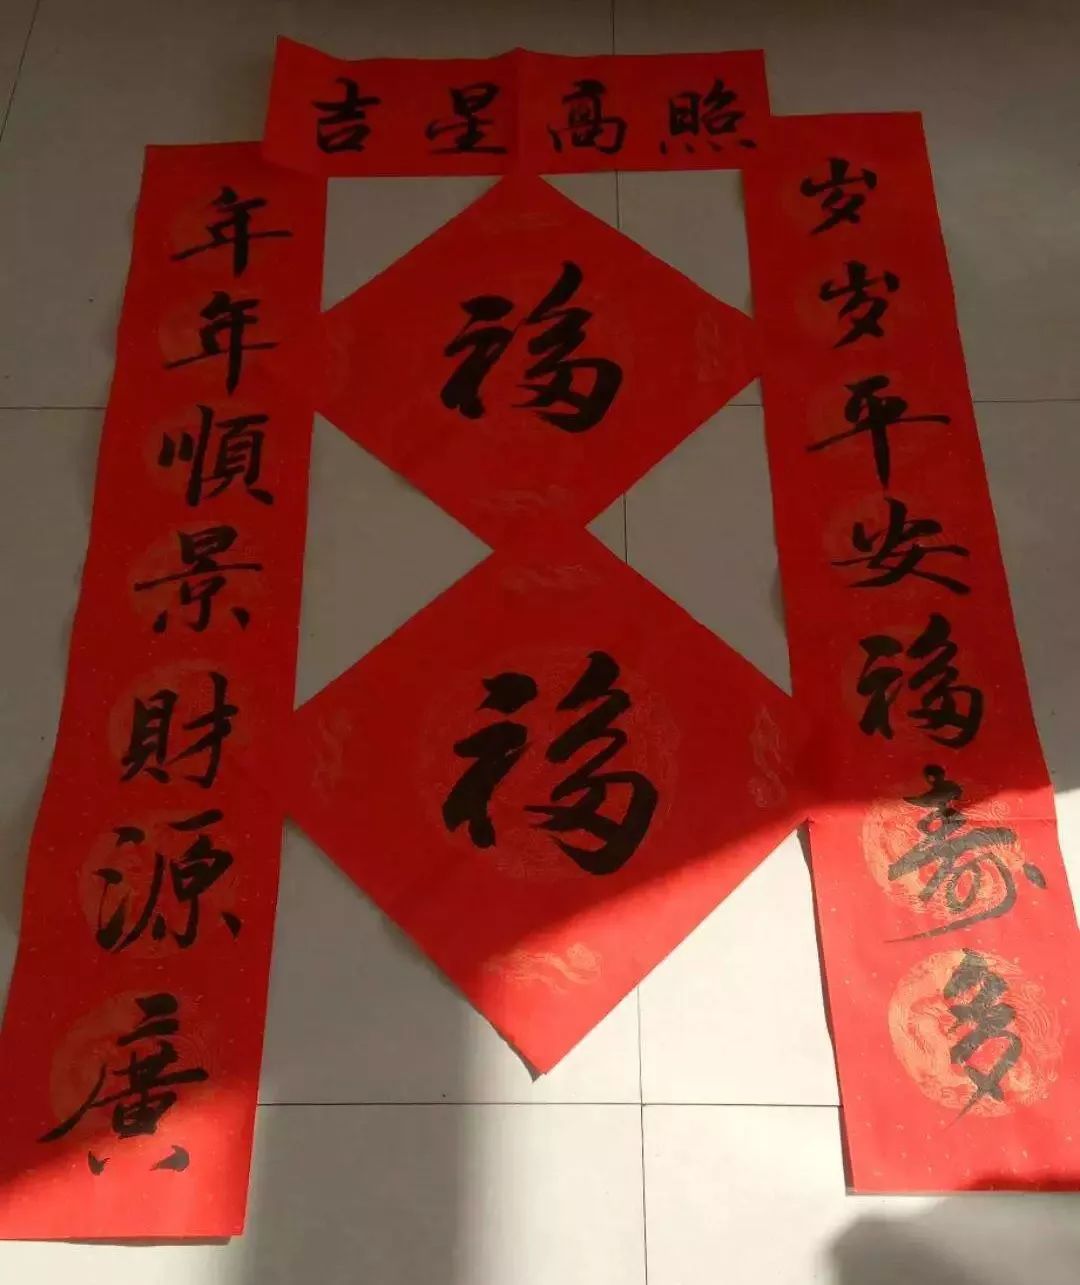 吉星高照
年年順景財源廣
岁岁平安福寿多
福
福